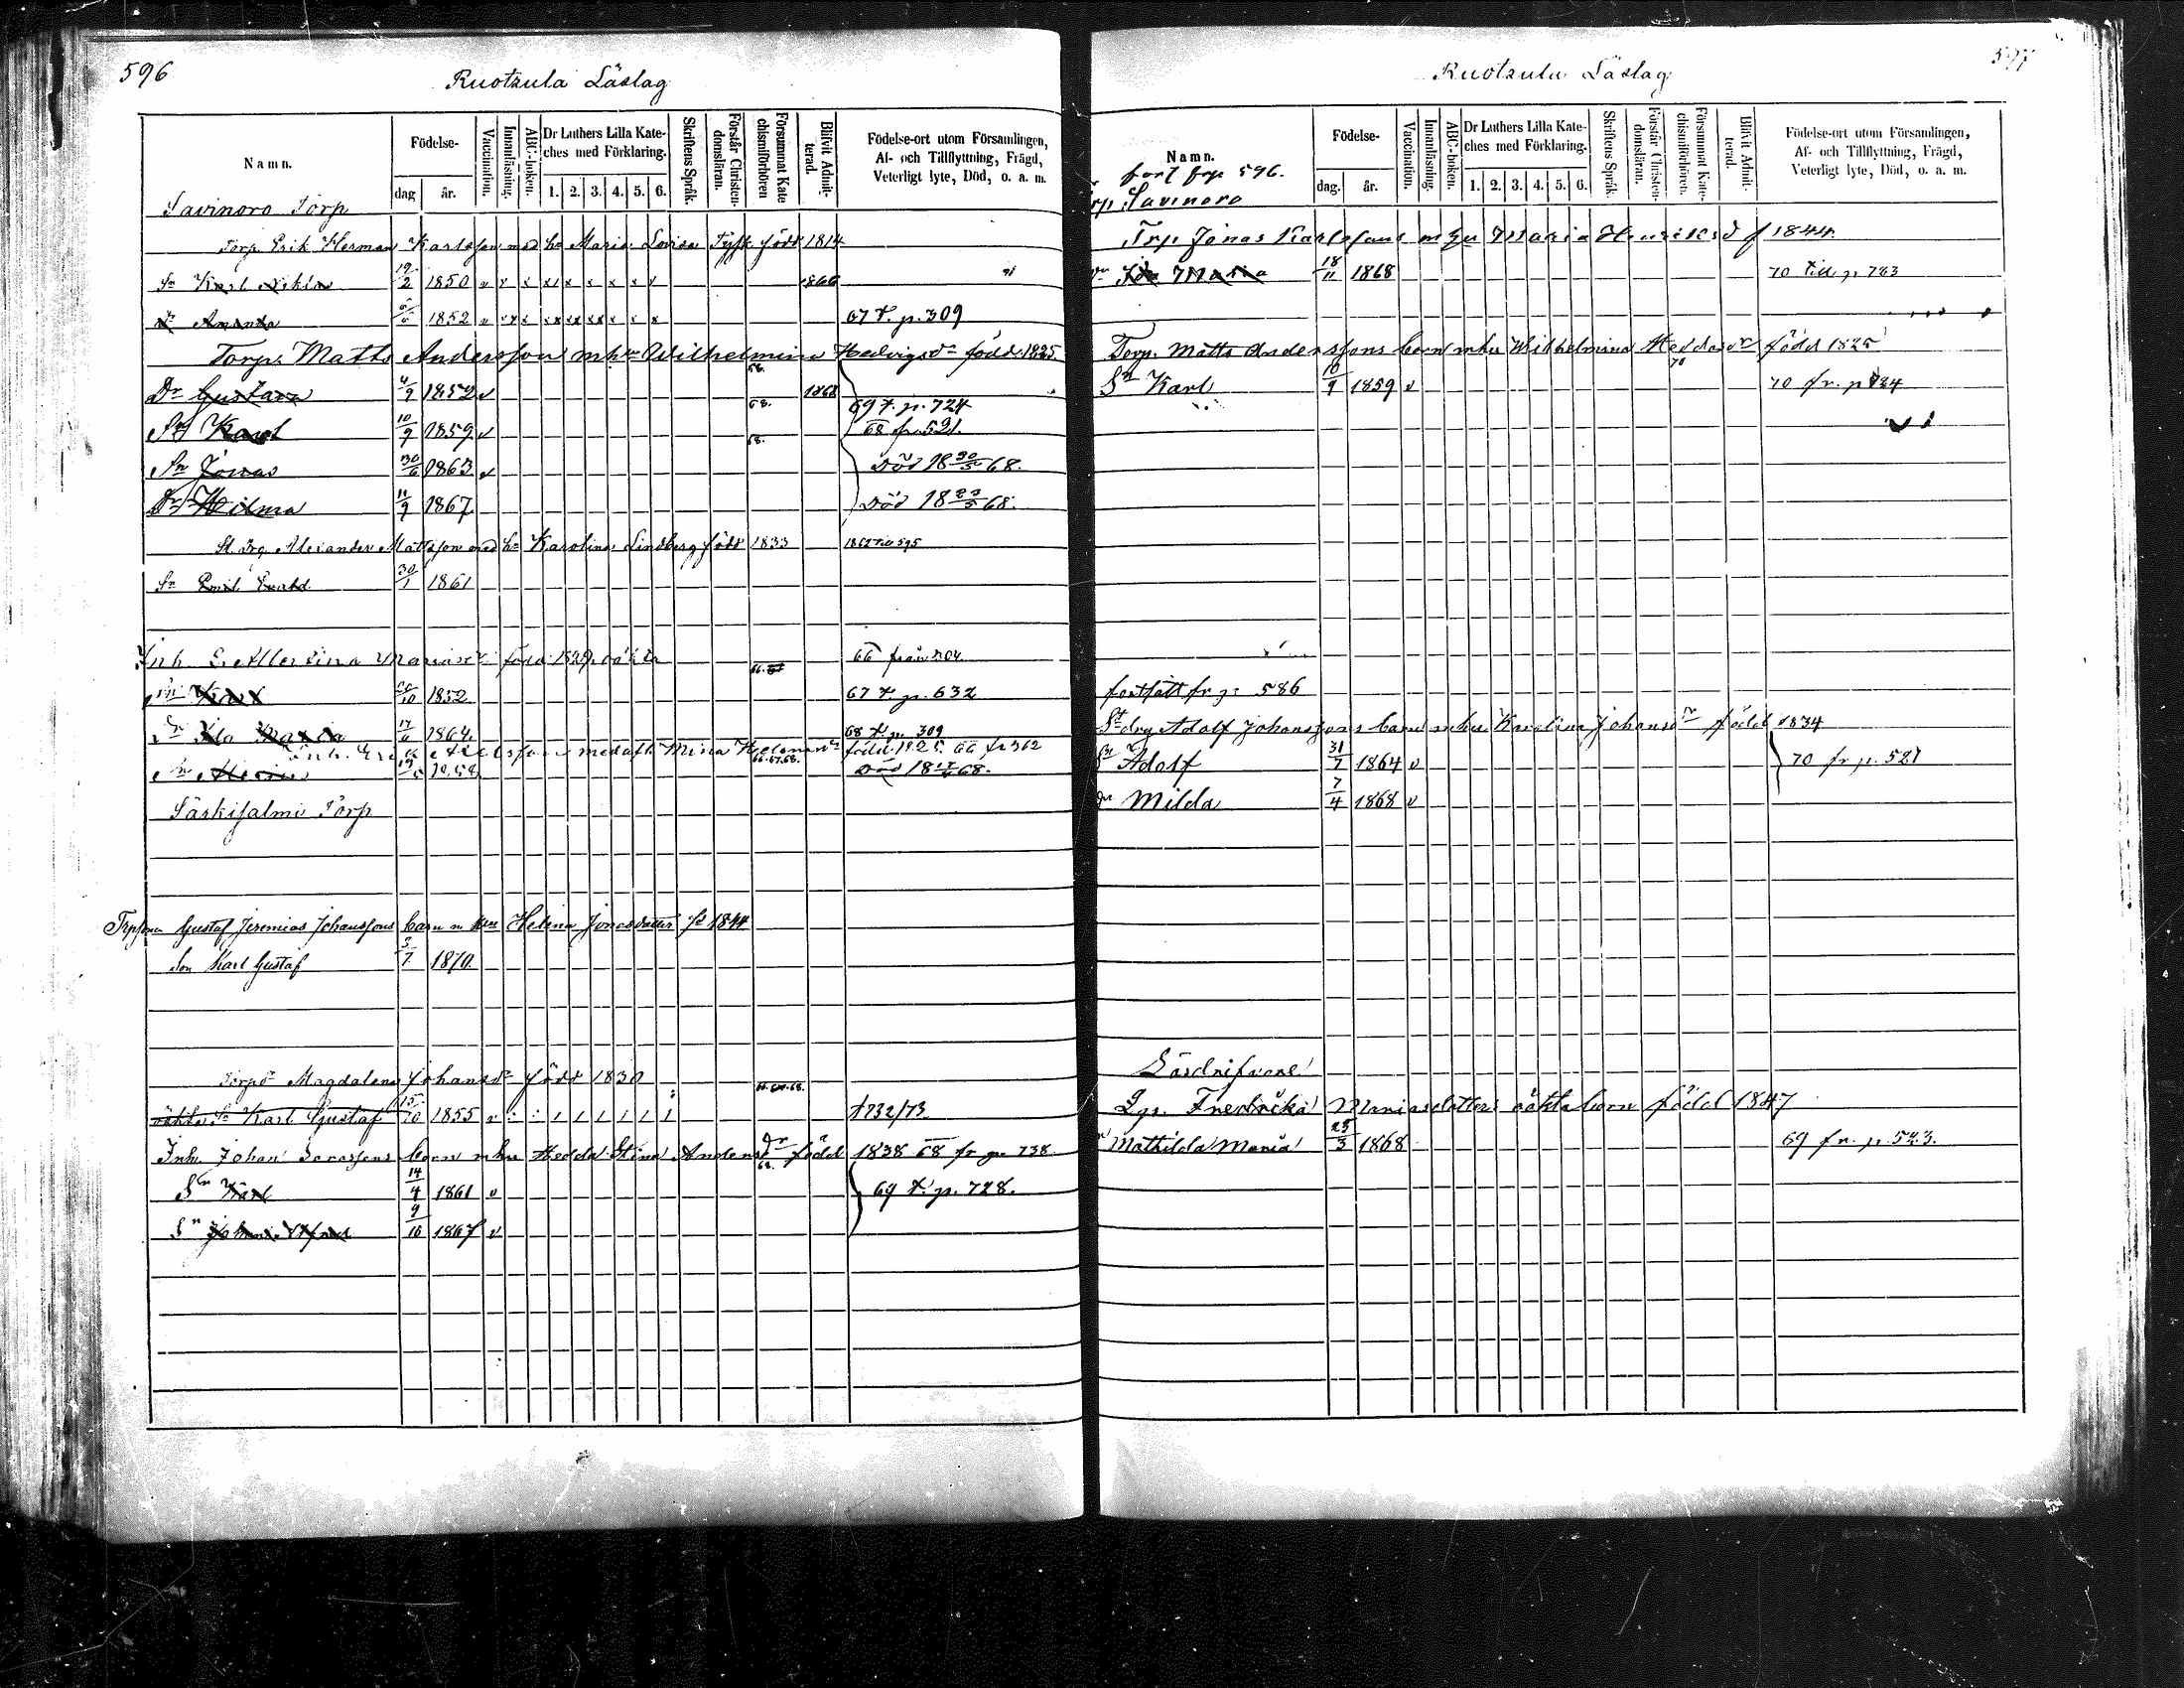 596
Ruotzula Läslag
Namn.
Födelse-
dag
år.
Vaccination.
Innanläsning.
ABC-boken.
Dr Luthers Lilla Kate-
ches med Förklaring.
1. 2. 3. 4. 5. 6.
Skriftens Språk.
Förstår Christen-
domsläran.
Försummat Kate
chismiförhören
Blifvit Admit-
terad.
Födelse-ort utom Församlingen,
Af- och Tillflyttning, Frägd,
Veterligt lyte, Död, o. a. m.
Savinoro Torp
Torp. Erik Herman Karlsson med h. Maria Lovisa Tysk född 1814
Sn Karl 19/2 1850 v v x x x x x x v 1866
Amanda 1852 67 t. p. 309
Torp. Matts Andersson mhu Wilhelmina Hedvigsdr född 1825
Dr Gustava 4/9 1852 v 68. 1868 69 t. p. 724
Sn Karl 10/9 1859 v 68. 68 fr. 521.
Sn Jonas 30/6 1863 v 68. Död 18 30/5 68.
Dr Hilma 11/9 1867 Död 18 23/5 68.
St. Drg. Alexander Mattsson med h. Karolina Lindberg född 1833
Sn Emil Evald 30/1 1861
Inh. Albertina född oäkta 66 från 704
Sn Karl 1852 67 t. p. 632
Dr Ida Maria 17/6 1864 68 t. p. 309
Inh. med afl. Mina född 1825. 66 fr 362
66.67.68. Död 18 68.
Särkisalmi Torp
Trpson Gustaf Jeremias Johanssons barn m hu Helena Jonasdotter fd 1844
Son Karl Gustaf 3/7 1870.
Torpdr Magdalena Johansdr född 1830
oäkta Sn Karl Gustaf 15/10 1855 v t732/73
Inh. Johan barn mhu Hedda Stina Andersdr född 1838 68 fr p. 738.
Sn Karl 14/4 1861 v 69 t. p. 728.
Sn Johan Alfred 9/10 1867 v
597
Ruotzula Läslag
Namn.
fort frp 596.
Trp Savinoro
Födelse-
dag.
år.
Vaccination.
Innanläsning.
ABC-boken.
Dr Luthers Lilla Kate-
ches med Förklaring.
1. 2. 3. 4. 5. 6.
Skriftens Språk.
Förstår Christen-
domsläran.
Försummat Kate-
chismiförhören.
Blifvit Admit-
terad.
Födelse-ort utom Församlingen,
Af- och Tillflyttning, Frägd,
Veterligt lyte, Död, o. a. m.
Trp Jonas Karlssons m hu Maria Henriksd f 1844.
Dr Ida Maria 18/11 1868 70 till p. 783
Torp. Matts Anderssons barn mhu Wilhelmina Heddasdr född 1825
Sn Karl 10/9 1859 v 70 70 fr. p 724
fortsatt fr p: 586
St drg Adolf Johanssons barn mhu Karolina Johansdr född 1834
Sn Adolf 31/7 1864 v 70 fr p. 581
Dr Milda 7/4 1868 v
Fredricka Mariasdotters oäkta barn född 1847
Mathilda Maria 23/3 1868 69 fr. p. 523.